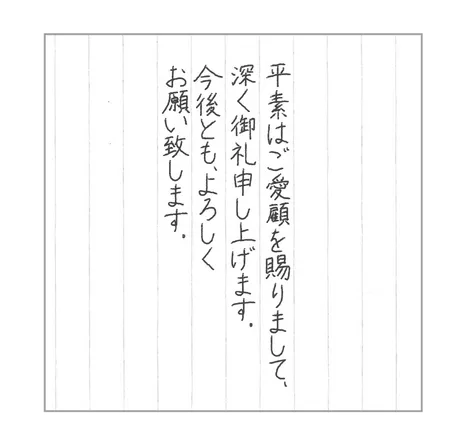 平素はご愛顧を賜りまして、
深く御礼申し上げます。
今後とも、よろしく
お願い致します。